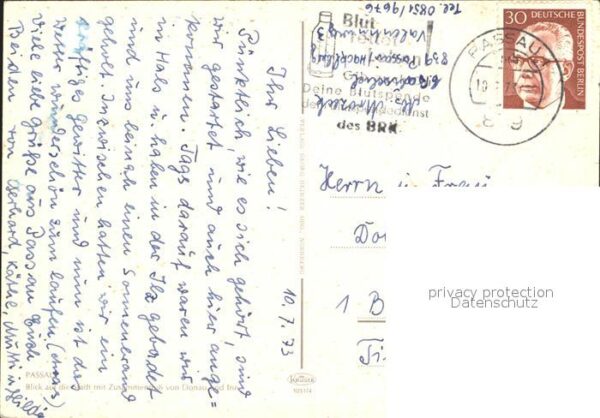 10.7.73
Ihr Lieben!
Pünktlich, wie es sich gehört, sind
wir gestartet und auch hier ange=
kommen. Tags darauf waren wir
in Hals u. haben in der Ilz gebadet
und uns beinah einen Sonnenbrand
geholt. Inzwischen hatten wir ein
kräftiges Gewitter und nun ist das
Wetter wunderschön zum laufen.
Viele liebe Grüße aus Passau Euch
Beiden von Gerhard, Käthe, Mutti u. Hilde
PASSAU
Blick auf die Stadt mit Zusammenfluß von Donau und Inn
Tel. 0851/9676
839 Passau/Hacklberg
Blut
Deine Blutspende
dem Blutspendedienst
des BRK
30 DEUTSCHE BUNDESPOST BERLIN
PASSAU
10
73
839
Herrn u. Frau
1 B
privacy protection
Datenschutz